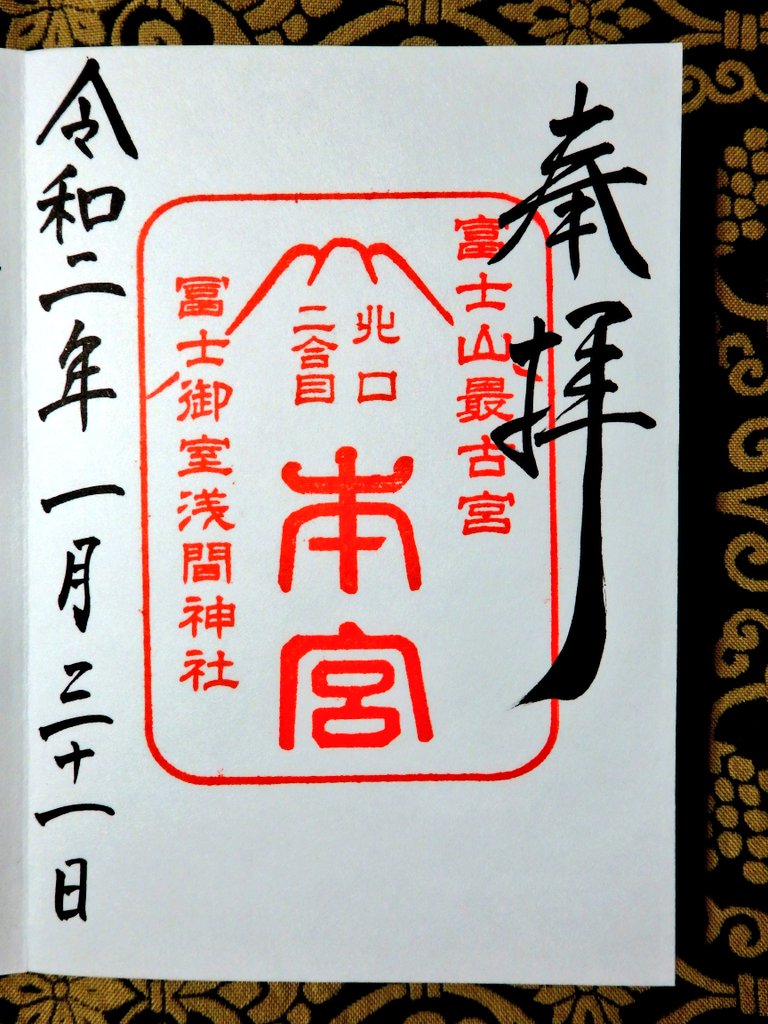 奉拝
富士山最古宮
北口
二合目
本宮
冨士御室浅間神社
令和二年一月三十一日